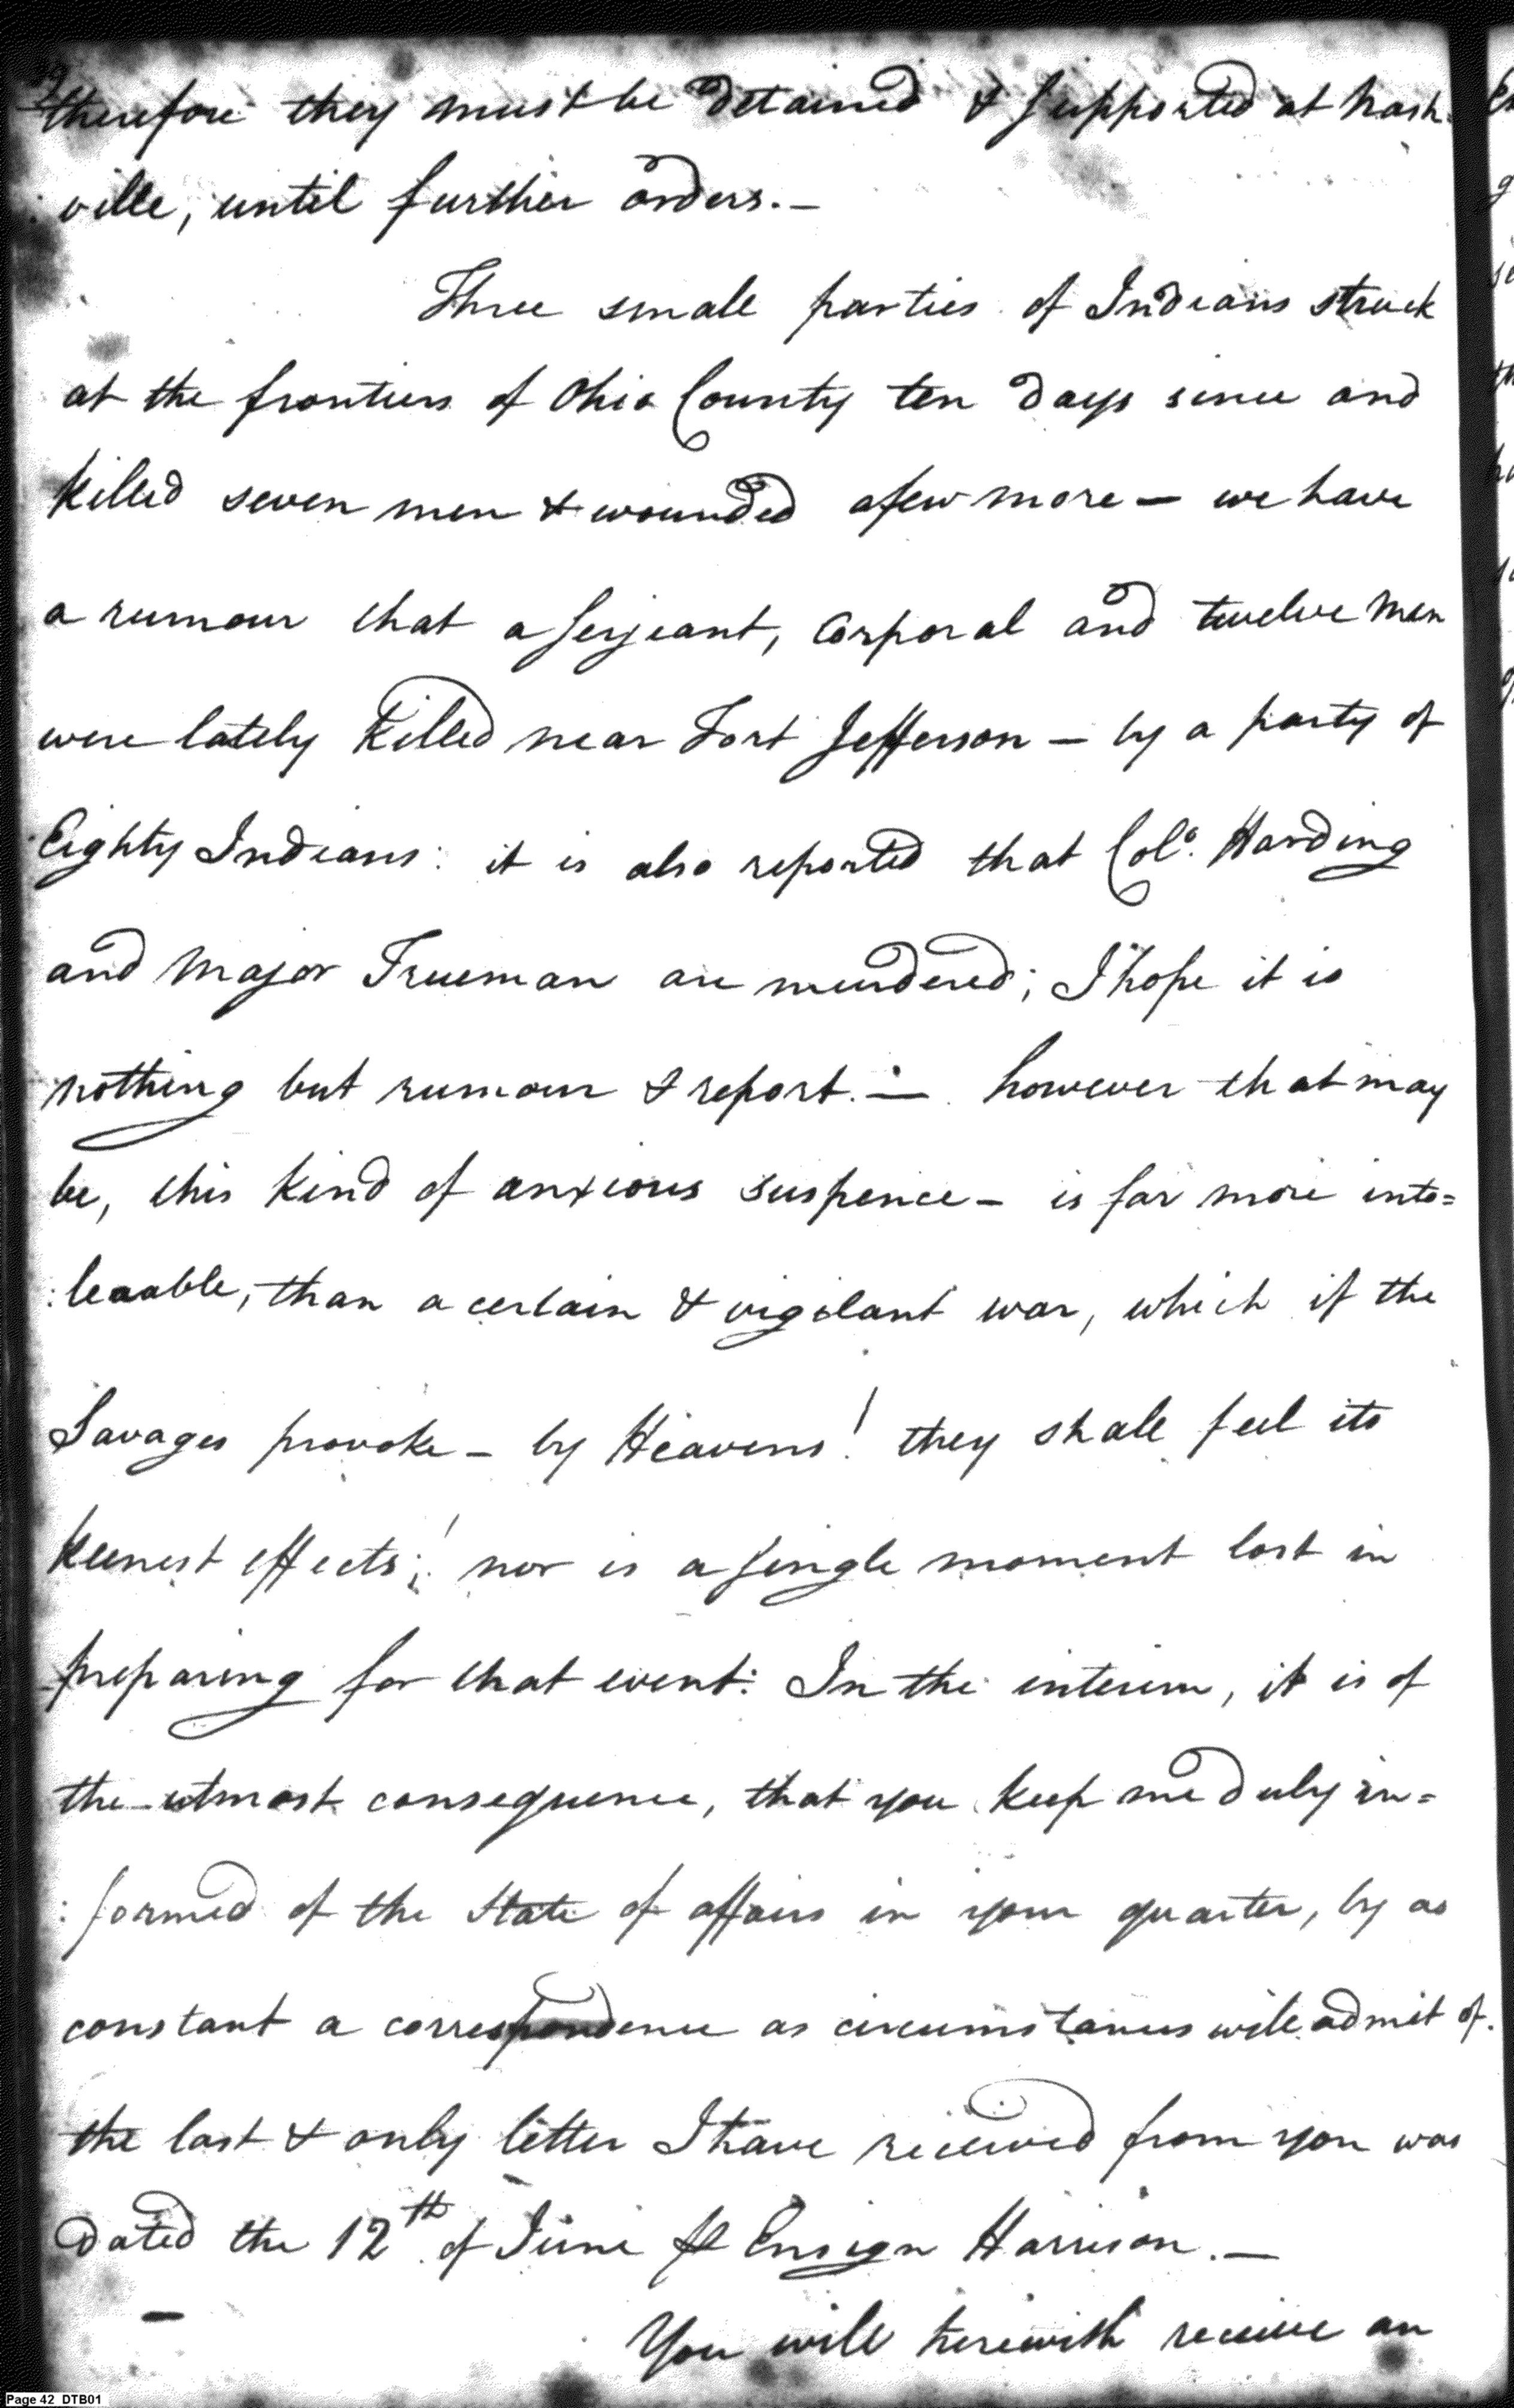 therefore they must be detained & supported at Nash-
ville, until further orders.—
Three small parties of Indians struck
at the frontiers of Ohio County ten days since and
killed seven men & wounded a few more — we have
a rumour that a Serjeant, Corporal and twelve men
were lately killed near Fort Jefferson — by a party of
Eighty Indians: it is also reported that Colo. Harding
and Major Trueman are murdered; I hope it is
nothing but rumour & report. — however that may
be, this kind of anxious suspence — is far more into=
:leaable, than a certain & vigilant war, which if the
Savages provoke — by Heavens! they shall feel its
keenest effects;! nor is a single moment lost in
preparing for that event: In the interim, it is of
the utmost consequence, that you keep me duly in=
:formed of the State of affairs in your quarter, by as
constant a correspondence as circumstances will admit of.
the last & only letter I have received from you was
Dated the 12th of June ⅌ Ensign Harrison.—
You will herewith receive an
Page 42 DTB01